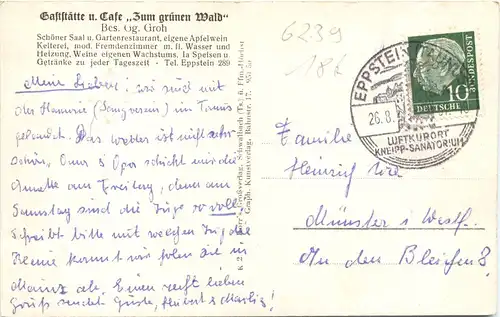 Gaststätte u. Cafe „Zum grünen Wald“
Bes. Gg. Groh
Schöner Saal u. Gartenrestaurant, eigene Apfelwein
Kelterei, mod. Fremdenzimmer m. fl. Wasser und
Heizung, Weine eigenen Wachstums. Ia Speisen u.
Getränke zu jeder Tageszeit · Tel. Eppstein 289
Meine Lieben! wir sind mit
der Harmonie (Gesangverein) im Taunus
gelandet. Das Wetter ist nicht sehr
schön. Oma & Opa schickt mir die
Annette am Freitag, denn am
Samstag sind die Züge so voll.
Schreibt bitte mit welchem Zug die
Kleine kommt wir holen sie in
Mainz ab. Einen recht lieben
Gruß sendet Guste, Hubert &
6239
18k
EPPSTEIN (TAUNUS)
26.8.
LUFTKURORT
KNEIPP-SANATORIUM
DEUTSCHE
BUNDESPOST
10
Familie
Heinrich
Münster i Westf.
An den Bleichen 8